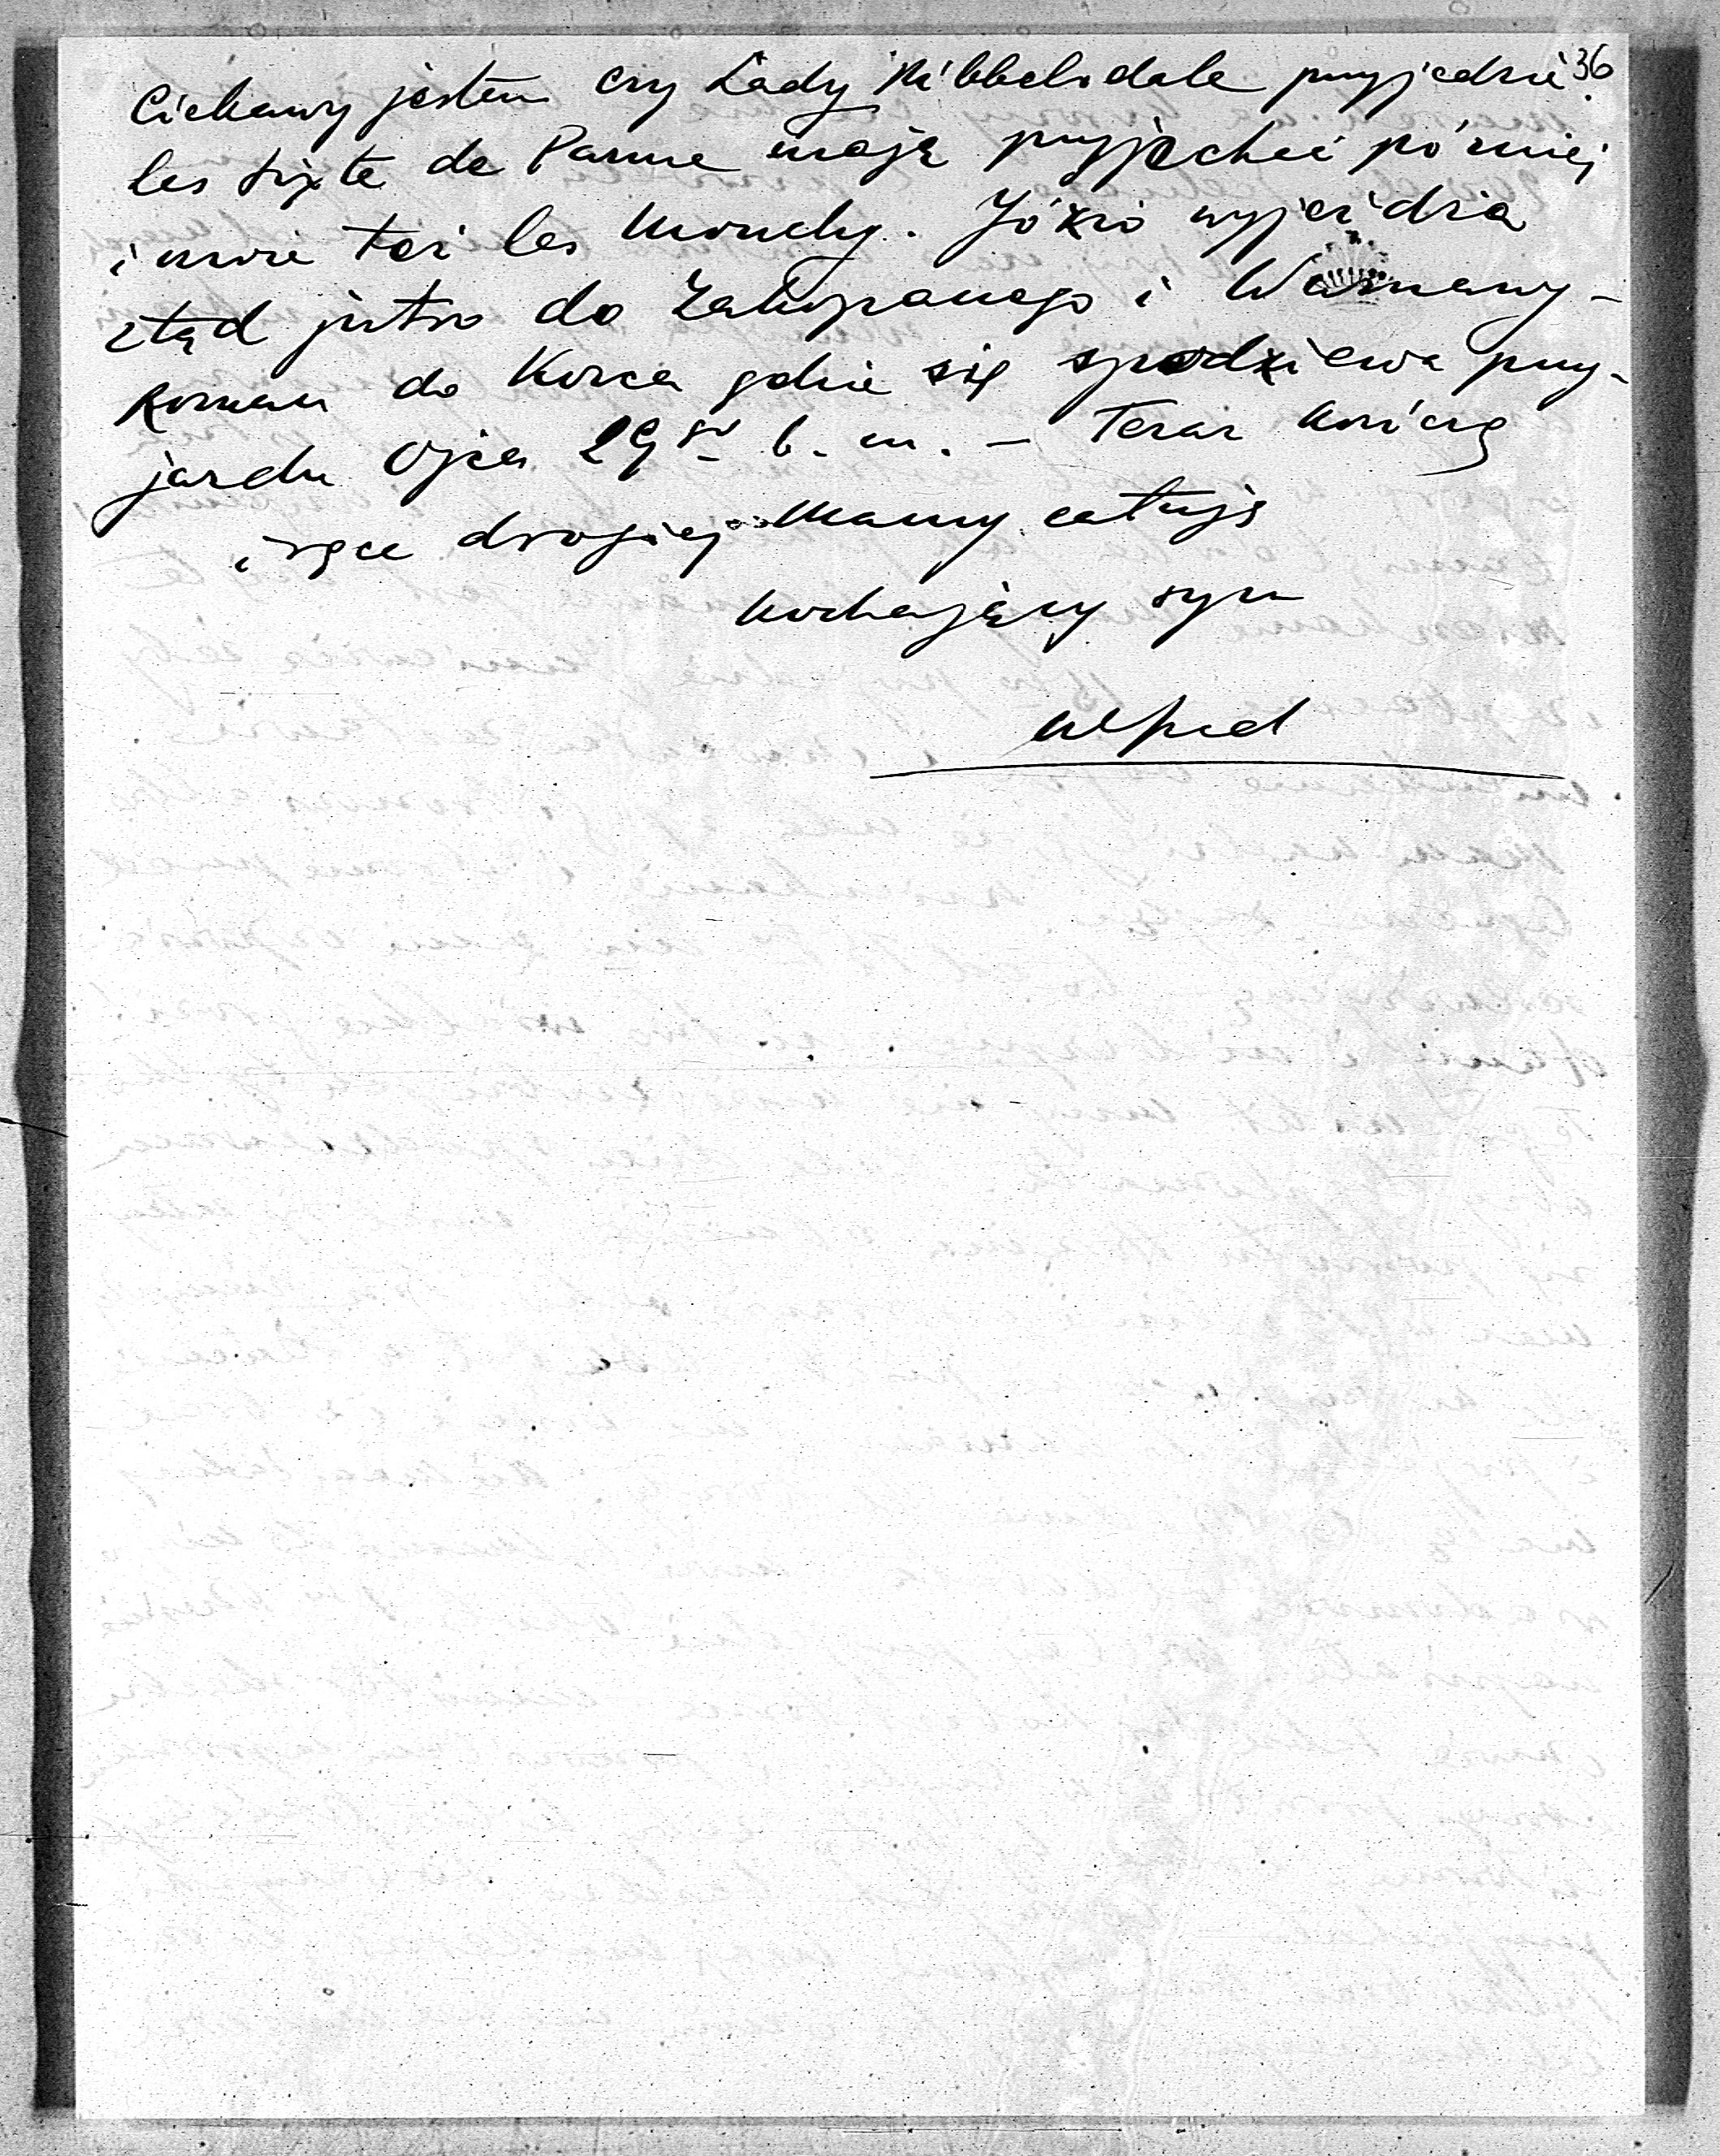 36
Ciekawy jestem czy Lady Ribbelsdale przyjedzie.
les Sixte de Parme mają przyjechać później
i może też les Mouchy. Józio wyjeżdża
ztąd jutro do Zakopanego i Warszawy –
Roman do Korca gdzie się spodziewa przy-
jazdu Ojca 29go b. m. – Teraz kończę
i ręce drogiej Mamy całuję
kochający syn
Alfred